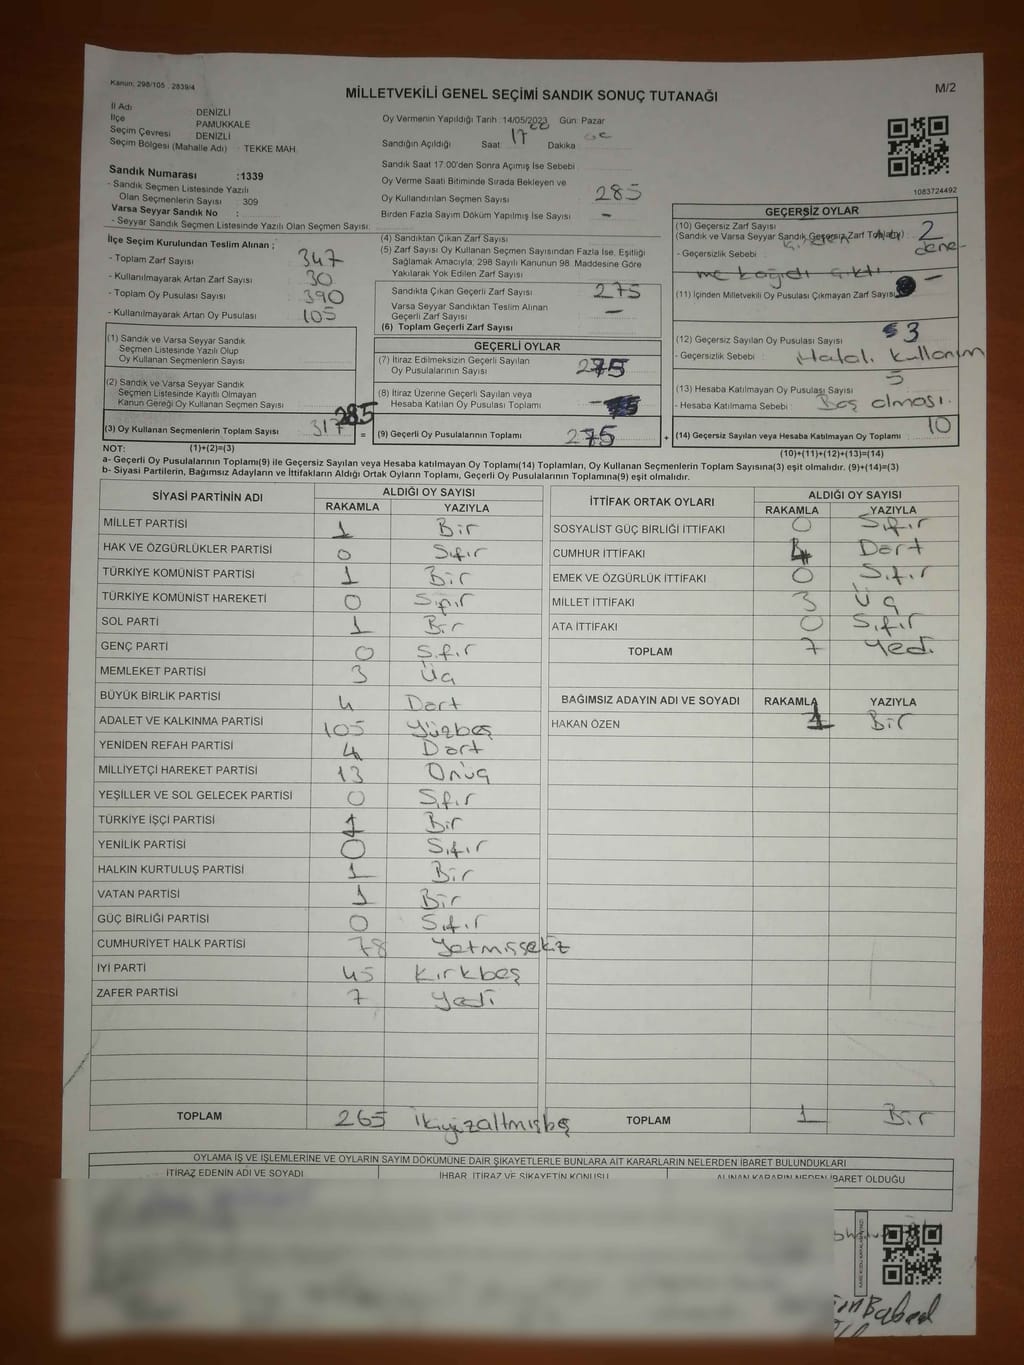 Kanun: 298/105 . 2839/4
M/2
MİLLETVEKİLİ GENEL SEÇİMİ SANDIK SONUÇ TUTANAĞI
İl Adı DENİZLİ
İlçe PAMUKKALE
Seçim Çevresi DENİZLİ
Seçim Bölgesi (Mahalle Adı) : TEKKE MAH.
Sandık Numarası :1339
- Sandık Seçmen Listesinde Yazılı
Olan Seçmenlerin Sayısı : 309
Varsa Seyyar Sandık No :
- Seyyar Sandık Seçmen Listesinde Yazılı Olan Seçmen Sayısı:
Oy Vermenin Yapıldığı Tarih :14/05/2023 Gün: Pazar
Sandığın Açıldığı Saat: 17 00 Dakika
Sandık Saat 17:00'den Sonra Açımış İse Sebebi
Oy Verme Saati Bitiminde Sırada Bekleyen ve
Oy Kullandırılan Seçmen Sayısı 285
Birden Fazla Sayım Döküm Yapılmış İse Sayısı -
1083724492
İlçe Seçim Kurulundan Teslim Alınan ;
- Toplam Zarf Sayısı 347
- Kullanılmayarak Artan Zarf Sayısı 30
- Toplam Oy Pusulası Sayısı 390
- Kullanılmayarak Artan Oy Pusulası 105
(1) Sandık ve Varsa Seyyar Sandık
Seçmen Listesinde Yazılı Olup
Oy Kullanan Seçmenlerin Sayısı
(2) Sandık ve Varsa Seyyar Sandık
Seçmen Listesinde Kayıtlı Olmayan
Kanun Gereği Oy Kullanan Seçmen Sayısı
(3) Oy Kullanan Seçmenlerin Toplam Sayısı 317 285
(4) Sandıktan Çıkan Zarf Sayısı
(5) Zarf Sayısı Oy Kullanan Seçmen Sayısından Fazla İse, Eşitliği
Sağlamak Amacıyla; 298 Sayılı Kanunun 98. Maddesine Göre
Yakılarak Yok Edilen Zarf Sayısı
Sandıkta Çıkan Geçerli Zarf Sayısı 275
Varsa Seyyar Sandıktan Teslim Alınan
Geçerli Zarf Sayısı -
(6) Toplam Geçerli Zarf Sayısı
GEÇERLİ OYLAR
(7) İtiraz Edilmeksizin Geçerli Sayılan
Oy Pusulalarının Sayısı 275
(8) İtiraz Üzerine Geçerli Sayılan veya
Hesaba Katılan Oy Pusulası Toplamı -
= (9) Geçerli Oy Pusulalarının Toplamı 275 +
GEÇERSİZ OYLAR
(10) Geçersiz Zarf Sayısı
(Sandık ve Varsa Seyyar Sandık Geçersiz Zarf Toplamı) : 2
- Geçersizlik Sebebi
(11) İçinden Milletvekili Oy Pusulası Çıkmayan Zarf Sayısı -
(12) Geçersiz Sayılan Oy Pusulası Sayısı : 3
- Geçersizlik Sebebi : Hatalı kullanım
(13) Hesaba Katılmayan Oy Pusulası Sayısı 5
- Hesaba Katılmama Sebebi : Boş olması.
(14) Geçersiz Sayılan veya Hesaba Katılmayan Oy Toplamı 10
NOT: (1)+(2)=(3)
(10)+(11)+(12)+(13)=(14)
a- Geçerli Oy Pusulalarının Toplamı(9) ile Geçersiz Sayılan veya Hesaba katılmayan Oy Toplamı(14) Toplamları, Oy Kullanan Seçmenlerin Toplam Sayısına(3) eşit olmalıdır. (9)+(14)=(3)
b- Siyasi Partilerin, Bağımsız Adayların ve İttifakların Aldığı Ortak Oyların Toplamı, Geçerli Oy Pusulalarının Toplamına(9) eşit olmalıdır.
SİYASİ PARTİNİN ADI ALDIĞI OY SAYISI
RAKAMLA YAZIYLA
MİLLET PARTİSİ 1 Bir
HAK VE ÖZGÜRLÜKLER PARTİSİ 0 Sıfır
TÜRKİYE KOMÜNİST PARTİSİ 1 Bir
TÜRKİYE KOMÜNİST HAREKETİ 0 Sıfır
SOL PARTİ 1 Bir
GENÇ PARTİ 0 Sıfır
MEMLEKET PARTİSİ 3 Üç
BÜYÜK BİRLİK PARTİSİ 4 Dört
ADALET VE KALKINMA PARTİSİ 105 Yüzbeş
YENİDEN REFAH PARTİSİ 4 Dört
MİLLİYETÇİ HAREKET PARTİSİ 13 Onüç
YEŞİLLER VE SOL GELECEK PARTİSİ 0 Sıfır
TÜRKİYE İŞÇİ PARTİSİ 1 Bir
YENİLİK PARTİSİ 0 Sıfır
HALKIN KURTULUŞ PARTİSİ 1 Bir
VATAN PARTİSİ 1 Bir
GÜÇ BİRLİĞİ PARTİSİ 0 Sıfır
CUMHURİYET HALK PARTİSİ 78 Yetmişsekiz
İYİ PARTİ 45 Kırkbeş
ZAFER PARTİSİ 7 Yedi
TOPLAM 265 İkiyüzaltmışbeş
İTTİFAK ORTAK OYLARI ALDIĞI OY SAYISI
RAKAMLA YAZIYLA
SOSYALİST GÜÇ BİRLİĞİ İTTİFAKI 0 Sıfır
CUMHUR İTTİFAKI 4 Dört
EMEK VE ÖZGÜRLÜK İTTİFAKI 0 Sıfır
MİLLET İTTİFAKI 3 Üç
ATA İTTİFAKI 0 Sıfır
TOPLAM 7 Yedi
BAĞIMSIZ ADAYIN ADI VE SOYADI RAKAMLA YAZIYLA
HAKAN ÖZEN 1 Bir
TOPLAM 1 Bir
OYLAMA İŞ VE İŞLEMLERİNE VE OYLARIN SAYIM DÖKÜMÜNE DAİR ŞİKAYETLERLE BUNLARA AİT KARARLARIN NELERDEN İBARET BULUNDUKLARI
İTİRAZ EDENİN ADI VE SOYADI İHBAR, İTİRAZ VE ŞİKAYETİN KONUSU ALINAN KARARIN NEDEN İBARET OLDUĞU